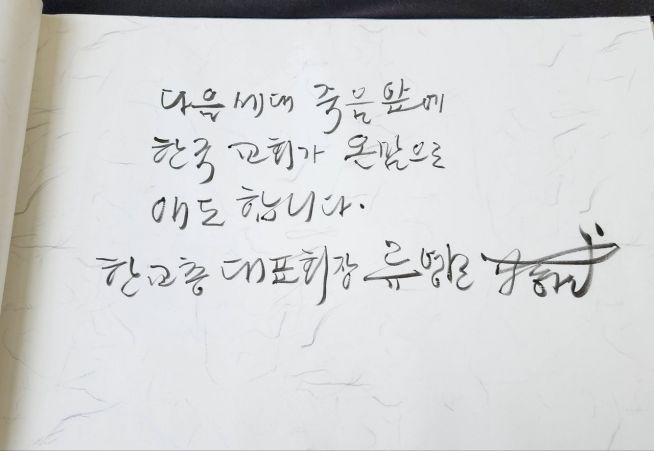 다음 세대 죽음 앞에
한국 교회가 온맘으로
애도 합니다.
한교총 대표회장 류영모